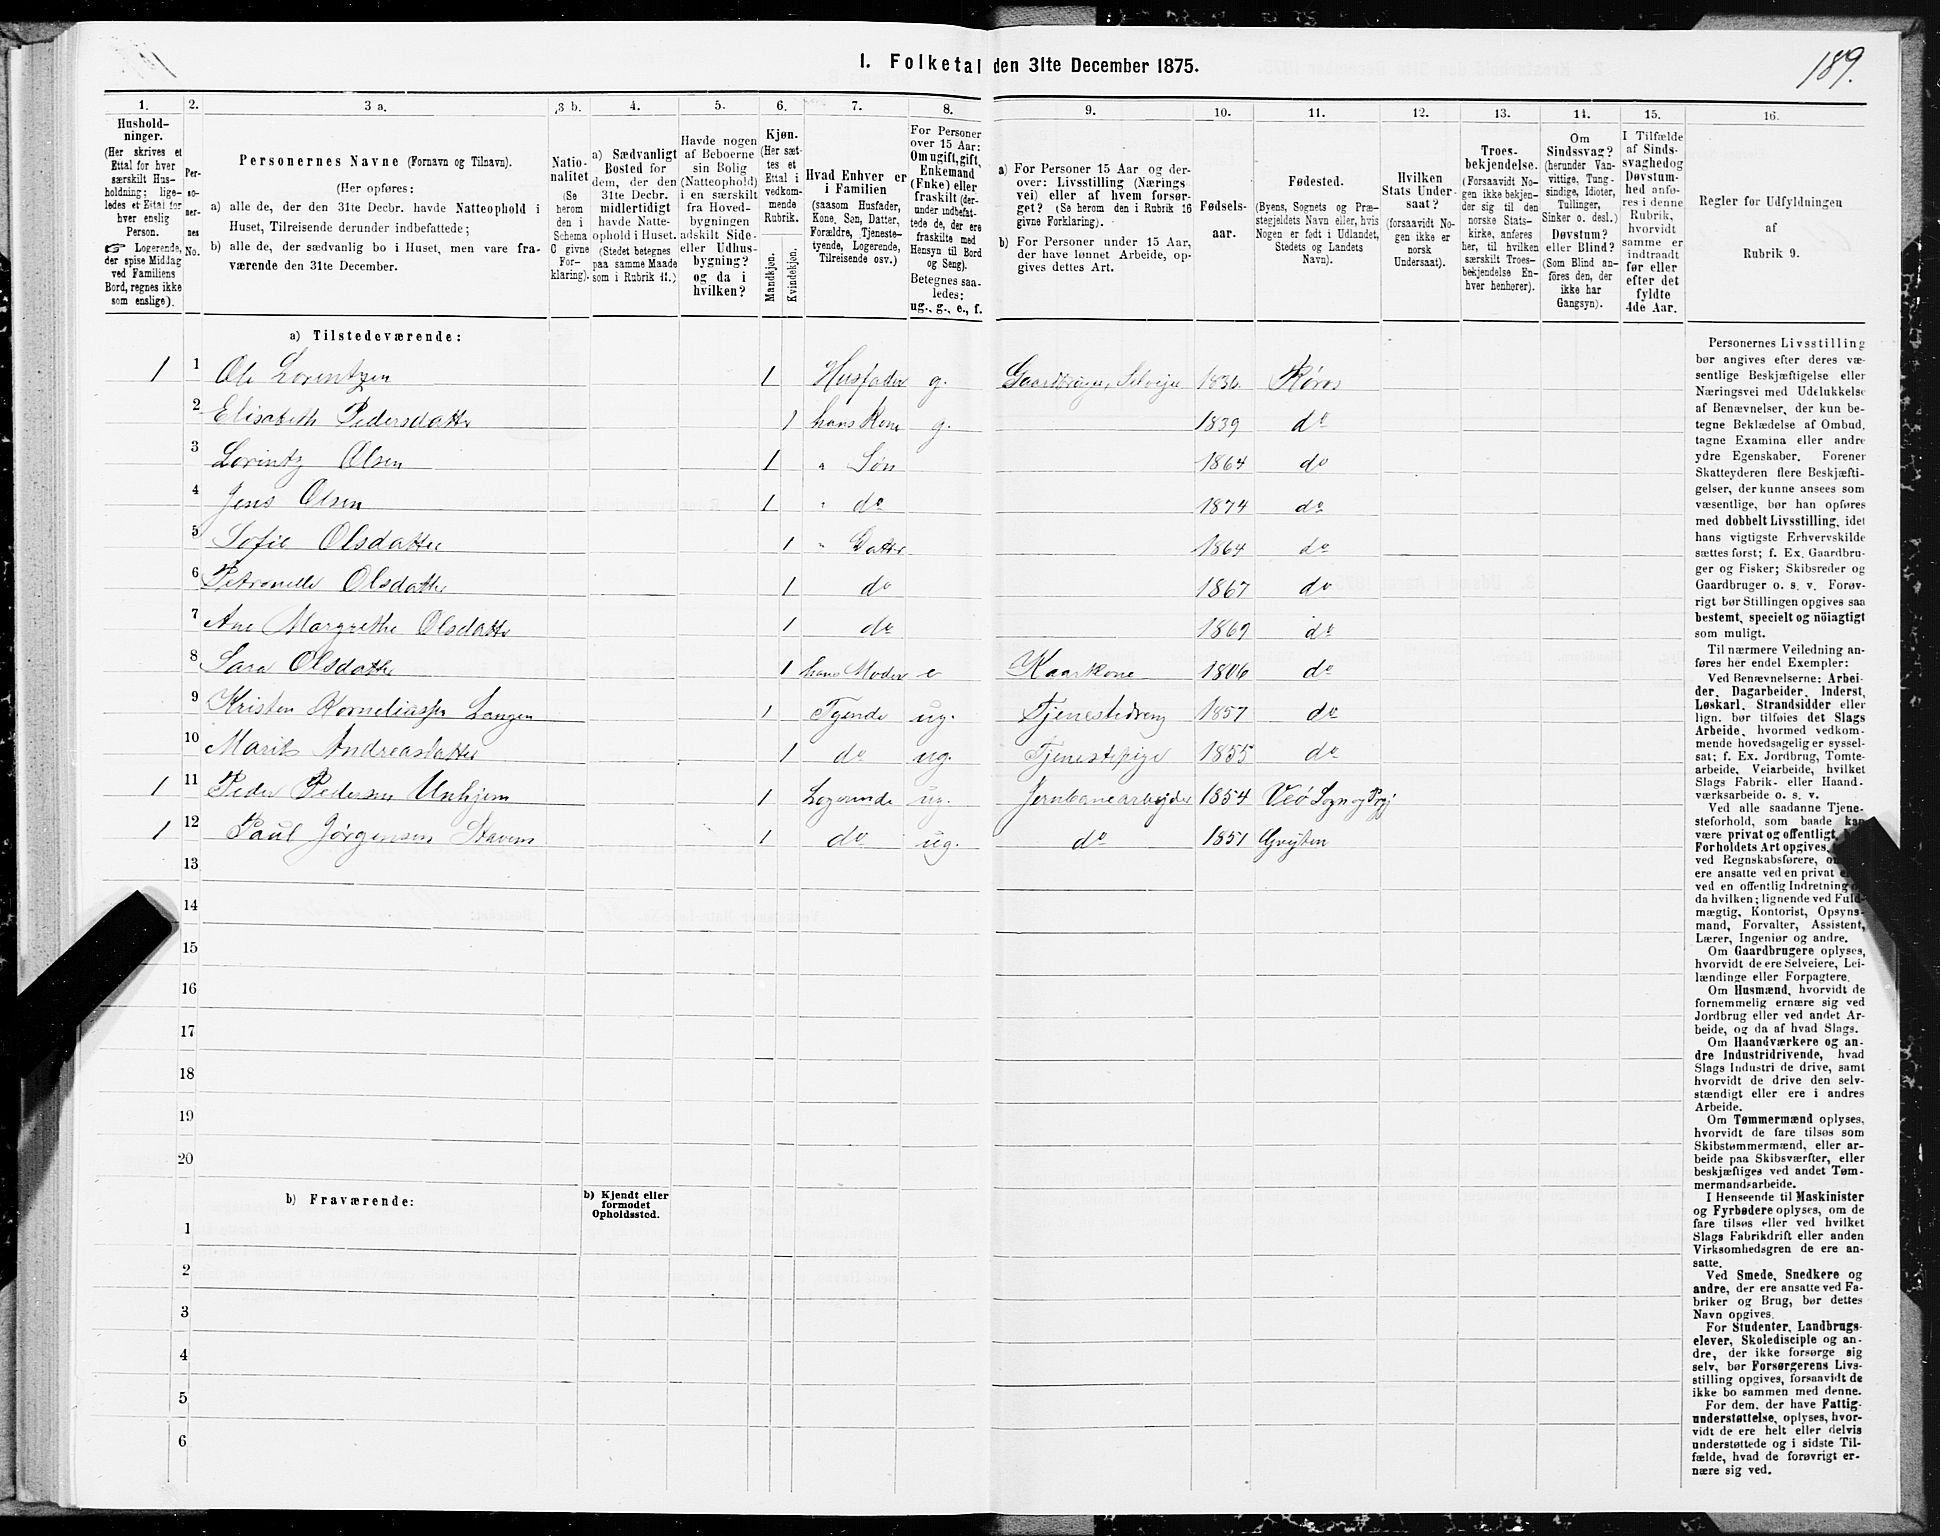 189.
1. Folketal den 31te December 1875.
1. 2. 3 a. 3 b. 4. 5. 6. 7. 8. 9. 10. 11. 12. 13. 14. 15. 16.
Hushold-
ninger.
(Her skrives et
Ettal for hver
særskilt Hus-
holdning; lige-
ledes et Ettal for
hver enslig
Person.
☞ Logerende,
der spise Middag
ved Familiens
Bord, regnes ikke
som enslige).
Per-
so-
ner-
nes
No.
Personernes Navne (Fornavn og Tilnavn).
(Her opføres:
a) alle de, der den 31te Decbr. havde Natteophold i
Huset, Tilreisende derunder indbefattede;
b) alle de, der sædvanlig bo i Huset, men vare fra-
værende den 31te December.
Natio-
nalitet
(Se
herom
den i
Schema
C givne
For-
klaring).
a) Sædvanligt
Bosted for
dem, der den
31te Decbr.
midlertidigt
havde Natte-
ophold i Huset.
(Stedet betegnes
paa samme Maade
som i Rubrik 11.)
Havde nogen
af Beboerne
sin Bolig
(Natteophold)
i en særskilt
fra Hoved-
bygningen
adskilt Side-
eller Udhus-
bygning?
og da i
hvilken?
Kjøn.
(Her sæt-
tes et
Ettal i
vedkom-
mende
Rubrik.
Mandkjøn.
Kvindekjøn.
Hvad Enhver er
i Familien
(saasom Husfader,
Kone, Søn, Datter,
Forældre, Tjeneste-
tyende, Logerende,
Tilreisende osv.)
For Personer
over 15 Aar:
Om ugift, gift,
Enkemand
(Enke) eller
fraskilt (der-
under indbefat-
tede de, der ere
fraskilte med
Hensyn til Bord
og Seng).
Betegnes saa-
ledes:
ug., g., e., f.
a) For Personer 15 Aar og der-
over: Livsstilling (Nærings
vei) eller af hvem forsør-
get? (Se herom den i Rubrik 16
givne Forklaring).
b) For Personer under 15 Aar,
der have lønnet Arbeide, op-
gives dettes Art.
Fødsels-
aar.
Fødested.
(Byens, Sognets og Præ-
stegjeldets Navn eller, hvis
Nogen er født i Udlandet,
Stedets og Landets
Navn).
Hvilken
Stats Under-
saat?
(forsaavidt No-
gen ikke er
norsk
Undersaat).
Troes-
bekjendelse.
(Forsaavidt No-
gen ikke bekjen-
der sig til den
norske Stats-
kirke, anføres
her, til hvilken
særskilt Troes-
bekjendelse En-
hver henhører).
Om
Sindssvag?
(herunder Van-
vittige, Tung-
sindige, Idioter,
Tullinger,
Sinker o. desl.)
Døvstum?
eller Blind?
(Som Blind an-
føres den, der
ikke har
Gangsyn).
I Tilfælde
af Sinds-
svaghedog
Døvstum-
hed anfø-
res i denne
Rubrik,
hvorvidt
samme er
indtraadt
før eller
efter det
fyldte
4de Aar.
Regler for Udfyldningen
af
Rubrik 9.
a) Tilstedeværende:
1 1 Ole Lorentzen 1 Husfader g. Gaardbruger, Selveier 1836. Røros
2 Elisabeth Pedersdatter 1 hans Kone g. 1839 do
3 Lorintz Olsen 1 " Søn 1864 do
4 Jens Olsen 1 " do 1874 do
5 Sofie Olsdatter 1 " Datter 1864 do
6 Petronelle Olsdatter 1 do 1867 do
7 Ane Margrethe Olsdatter 1 do 1869 do
8 Sara Olsdatter 1 hans Moder e Kaarkone 1806 do
9 Kristen Korneliassen Langen 1 Tyende ug. Tjenestedreng 1857 do
10 Marit Andreasdatter 1 do ug. Tjenestepige 1855 do
1 11 Peder Pedersen Unhjem 1 Logerende ug. Jernbanearbejder 1854 Veø Sogn og Pgj
1 12 Paul Jørgensen Stavem 1 do ug. do 1851 Grytten
13
14
15
16
17
18
19
20
b) Fraværende:
b) Kjendt eller
formodet
Opholdssted.
1
2
3
4
5
6
Personernes Livsstilling
bør angives efter deres væ-
sentlige Beskjæftigelse eller
Næringsvei med Udelukkelse
af Benævnelser, der kun be-
tegne Beklædelse af Ombud,
tagne Examina eller andre
ydre Egenskaber. Forener
Skatteyderen flere Beskjæfti-
gelser, der kunne ansees som
væsentlige, bør han opføres
med dobbelt Livsstilling, idet
hans vigtigste Erhvervskilde
sættes først; f. Ex. Gaardbru-
ger og Fisker; Skibsreder og
Gaardbruger o. s. v. Forøv-
rigt bør Stillingen opgives saa
bestemt, specielt og nöiagtigt
som muligt.
Til nærmere Veiledning an-
føres her endel Exempler:
Ved Benævnelserne: Arbei-
der, Dagarbeider, Inderst,
Løskarl, Strandsidder eller
lign. bør tilføies det Slags
Arbeide, hvormed vedkom-
mende hovedsagelig er syssel-
sat; f. Ex. Jordbrug, Tomte-
arbeide, Veiarbeide, hvilket
Slags Fabrik- eller Haand-
værksarbeide o. s. v.
Ved alle saadanne Tjene-
steforhold, som baade kan
være privat og offentligt,
Forholdets Art opgives,
ved Regnskabsførere,
ere ansatte ved en privat
ved en offentlig Indretning
da hvilken; lignende ved Fuld-
mægtig, Kontorist, Opsyns-
mand, Forvalter, Assistent,
Lærer, Ingeniør og andre.
Om Gaardbrugere oplyses,
hvorvidt de ere Selveiere, Lei-
lændinge eller Forpagtere.
Om Husmænd, hvorvidt de
fornemmelig ernære sig ved
Jordbrug eller ved andet Ar-
beide, og da af hvad Slags.
Om Haandværkere og an-
dre Industridrivende, hvad
Slags Industri de drive, samt
hvorvidt de drive den selv-
stændigt eller ere i andres
Arbeide.
Om Tømmermænd oplyses,
hvorvidt de fare tilsøs som
Skibstømmermænd, eller ar-
beide paa Skibsværfter, eller
beskjæftiges ved andet Tøm-
mermandsarbeide.
I Henseende til Maskinister
og Fyrbødere oplyses, om de
fare tilsøs eller ved hvilket
Slags Fabrikdrift eller anden
Virksomhedsgren de ere an-
satte.
Ved Smede, Snedkere og
andre, der ere ansatte ved Fa-
briker og Brug, bør dettes
Navn opgives.
For Studenter, Landbrugs-
elever, Skoledisciple og an-
dre, der ikke forsørge sig
selv, bør Forsørgerens Livs-
stilling opgives, forsaavidt de
ikke bo sammen med denne.
For dem, der have Fattig-
understøttelse, oplyses, hvor-
vidt de ere helt eller delvis
understøttede og i sidste Til-
fælde, hvad de forøvrigt er-
nære sig ved.